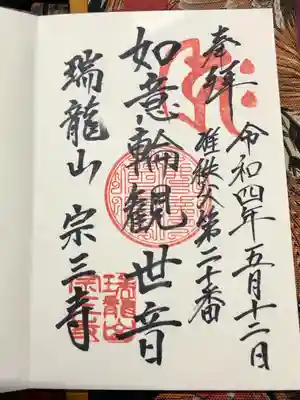 奉拝
令和四年五月十二日
准秩父第二十番
如意輪観世音
瑞龍山 宗三寺